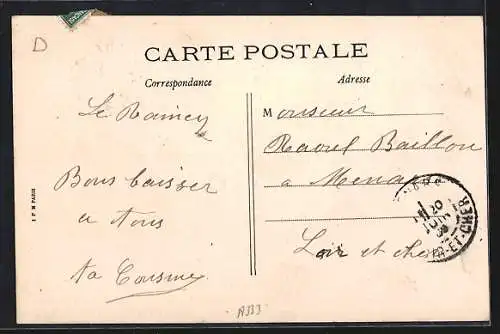 D
CARTE POSTALE
Correspondance
Adresse
Le Raincy
Bons baiser
a tous
ta Cousine
Monsieur
Raoul Baillon
a Menars
Loir et cher
20
JUIN
ET-CHER
A333